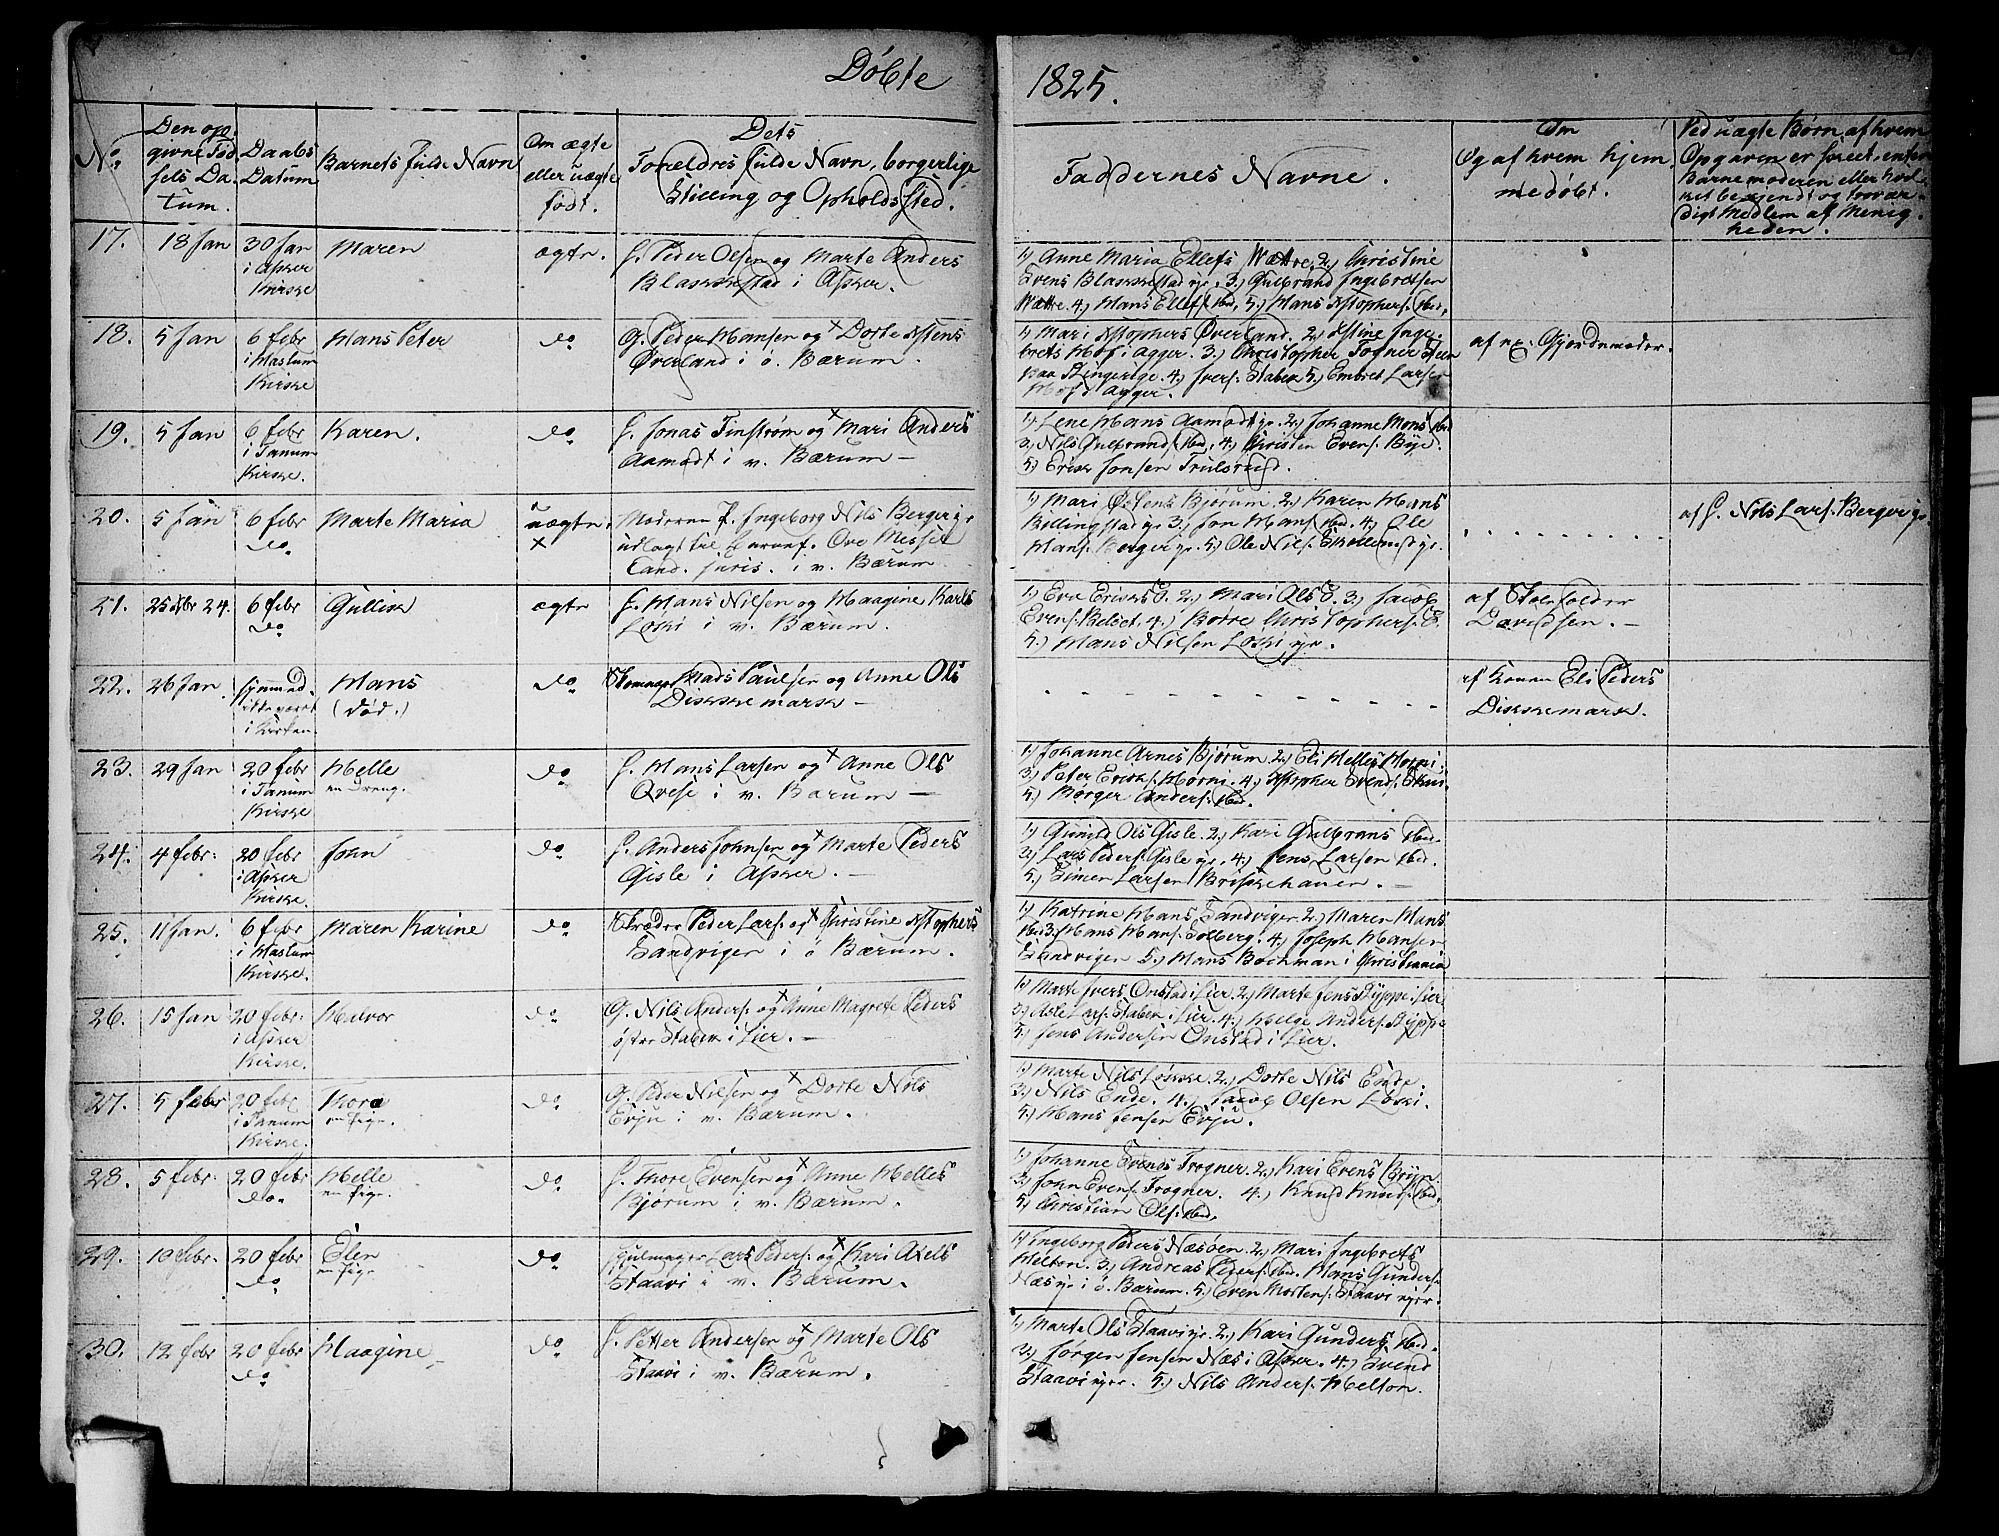 Døbte 1825.
No.
Den op
givne Fød
sels Da
tum.
Daabs
Datum
Barnets fulde Navn
Om ægte
eller uægte
født.
Dets
Foreldres fulde Navn, borgerlige
Stilling og Opholdssted.
Faddernes Navne.
Om
og af hvem hjem
medøbt.
Ved uægte Børn, af hvem
Opgaven er skeet, enten
Barnemoderen eller hvil
ket bekjendt og trovær
digt Medlem af Menig
heden.
17. 18 Jan
30 Jan
i Asker
Kirke
Maren
ægte.
G. Peder Olsen og Marte Anders
Blakkestad i Asker.
1) Anne Maria Ellefs Wættre. 2) Christine
Evens Blakkestad 3.) Gulbrand Ingebretsen
Wættre. 4.) Hans Ellefs. ibid. 5.) Hans Xstophers. ibid.
18. 5 Jan
6 febr
i Haslum
Kirke
Hans Peter
do
G. Peder Hansen og Dorte Xstens
Øverland i ö. Bærum
1) Mari Xstophers Øverland. 2.) Xstine Inge
brets Hof i Agger. 3.) Christopher Fogner
paa Ringerige. 4.) Ivers. Stabek 5.) Embret Larsen
Hof i Agger.
af ex: Gjordemoder.
19. 5 Jan
6 febr
i Tanum
Kirke.
Karen.
do
Jonas Finstrøm og Mari Anders
Aamodt i v. Bærum —
1) Lene Hans Aamodt 2.) Johanne Hans ibid
3.) Nils Gulbrands. ibid. 4.) Christen Evens. Bye.
5.) Erik Jonsen Trulsrud.
20. 5 Jan
6 febr
do.
Marte Maria
uægte.
Moderen P. Ingeborg Nils Berger
udlagt til Barnef. Ove Meisser
Cand. juris. i v. Bærum
1.) Mari Østens Bjørum 2.) Karen Hans
Billingstad 3.) Jon Hans. ibid. 4.) Ole
Hans. Berger 5.) Ole Nils.
af G. Nils Lars. Berger
21. 25 24.
6 febr
do
Gullik
ægte
G. Hans Nilsen og Haagine Karls
Løski i v. Bærum.
1.) Eve Eriks 2.) Mari Ols 3.) Jacob
Evens. Belset. 4.) Børre Christophers.
5.) Hans Nilsen Løski
af Skoleholder
Davidsen. —
22. 26 Jan.
hjemmed.
ikke været
i Kirken
Hans
(død.)
do
Mads Paulsen og Anne Ols
Dikkemark —
af Konen Eli Peders
Dikkemark.
23. 29 Jan
20 febr
i Tanum
Kirke
Helle
en Dreng.
do
G. Hans Larsen og Anne Ols
Qvese i v. Bærum —
1.) Johanne Arnes Bjørum 2.) Eli Helles Horni.
3.) Peter Eriks. Horni. 4.) Xstopher Evends. Skui.
5.) Børger Anders. ibid.
24. 4 febr:
20 febr
i Asker
Kirke.
John
do
G. Anders Johnsen og Marte Peders
Gisle i Asker. —
1.) Gunild Ols Gisle. 2.) Kari Gulbrans ibid.
3.) Lars Peders. Gisle 4.) Jens Larsen ibid.
5.) Simen Larsen Brikkehauen. —
25. 11 Jan.
6 febr
i Haslum
Kirke.
Maren Karine
do
Skræder Peder Lars. og Christine Xstophers
Sandvigen i ö Bærum.
1.) Katrine Hans Sandvigen 2.) Maren Hans
ibid. 3.) Hans Hans. Solberg. 4.) Joseph Hansen
Sandvigen 5.) Hans Bochman i Christiania
26. 15 Jan
20 febr.
i Asker
Kirke.
Halvor
do.
G. Nils Anders. og Anne Magrete Peders
østre Stabek i Lier. —
1.) Marte Ivers Onstad i Lier. 2.) Marte Jens Gyppe i Lier
3.) Asle Lars. Stabek i Lier. 4.) Helge Anders. Gyppe
5.) Jens Andersen Onstad i Lier.
27. 5 febr
20 febr
i Tanum
Kirke.
Thora
en Pige.
do.
G. Peder Nilsen og Dorte Nils
Evju i v. Bærum.
1.) Marte Nils Løkke. 2.) Dorte Nils Ende.
3.) Nils Ende. 4.) Jacob Olsen Løski.
5.) Hans Jensen Evju.
28. 5 febr.
20 febr
do.
Helle
en Pige.
do
G. Thore Evensen og Anne Helles
Bjørum i v. Bærum.
1.) Johanne Evends Frogner. 2.) Kari Evens Bryn
3.) John Evens. Frogner. 4.) Knud Knuds. ibid.
5.) Christian Ols. ibid.
29. 10 febr.
20 febr
do
Elen
en Pige
do
Hjulmager Lars Peders. og Kari Axels
Staavi i v. Bærum.
1.) Ingeborg Peders Næsøen. 2.) Mari Ingebrets
Helton. 3.) Andreas Peders. ibid. Hans Gunders.
Næs i ö. Bærum. 5.) Even Mortens. Staavi
30. 12 febr
20 febr
do
Haagine
do
G. Petter Andersen og Marte Ols
Staavi i v. Bærum.
1.) Marte Ols Staavi 2.) Kari Gunders ibid.
3.) Jørgen Jensen Næs i Asker. 4.) Svend
Staavi 5.) Nils Anders. Helton.